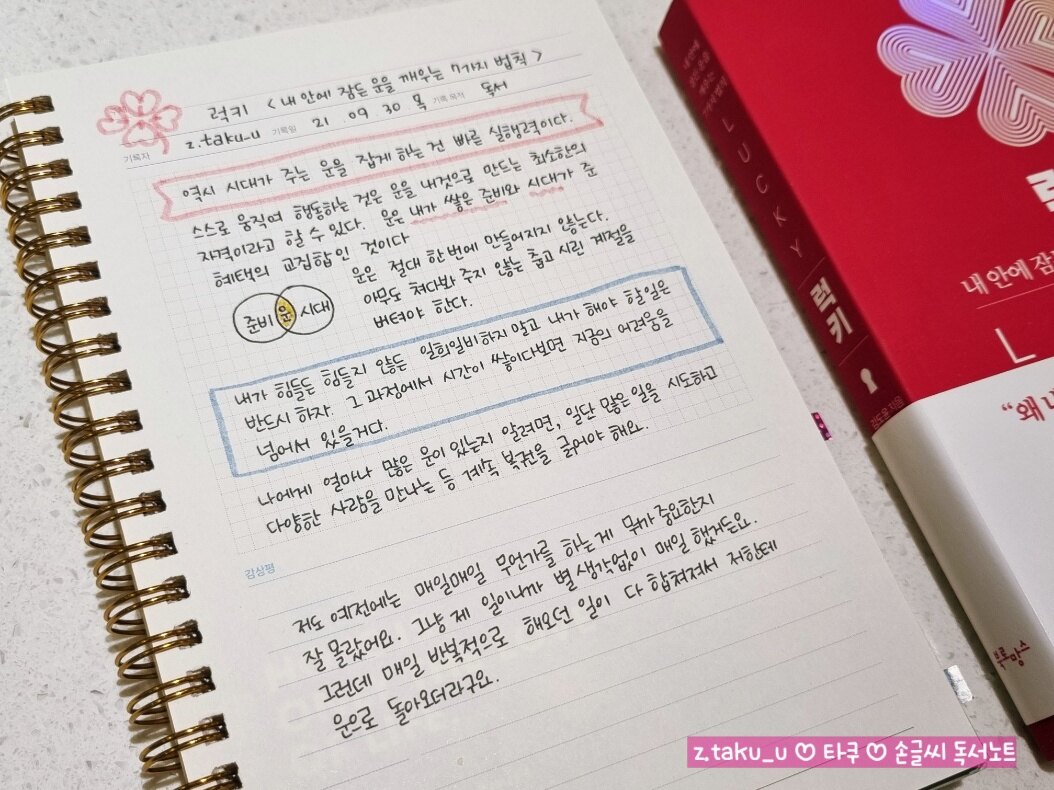 럭키 < 내 안에 잠든 운을 깨우는 7가지 법칙 >
기록자 z.taku_u 기록일 21 09 30 목 기록 목적 독서
역시 시대가 주는 운을 잡게 하는 건 빠른 실행력이다.
스스로 움직여 행동하는 것은 운을 내것으로 만드는 최소한의
자격이라고 할 수 있다. 운은 내가 쌓은 준비와 시대가 준
혜택의 교집합인 것이다
운은 절대 한번에 만들어지지 않는다.
아무도 쳐다봐 주지 않는 춥고 시린 계절을
버텨야 한다.
준비 운 시대
내가 힘들든 힘들지 않든 일희일비하지 말고 내가 해야 할일은
반드시 하자. 그 과정에서 시간이 쌓이다보면 지금의 어려움을
넘어서 있을거다.
나에게 얼마나 많은 운이 있는지 알려면, 일단 많은 일을 시도하고
다양한 사람을 만나는 등 계속 복권을 긁어야 해요.
감상평
저도 예전에는 매일매일 무언가를 하는게 뭐가 중요한지
잘 몰랐어요. 그냥 제 일이니까 별 생각없이 매일 했거든요.
그런데 매일 반복적으로 해오던 일이 다 합쳐져서 저한테
운으로 돌아오더라구요.
내 안에
잠든 운을
깨우는
7가지 법칙
LUCKY
럭키
김도윤 지음
북로망스
럭
내 안에 잠
L
“왜 나
z.taku_u ♡ 타쿠 ♡ 손글씨 독서노트